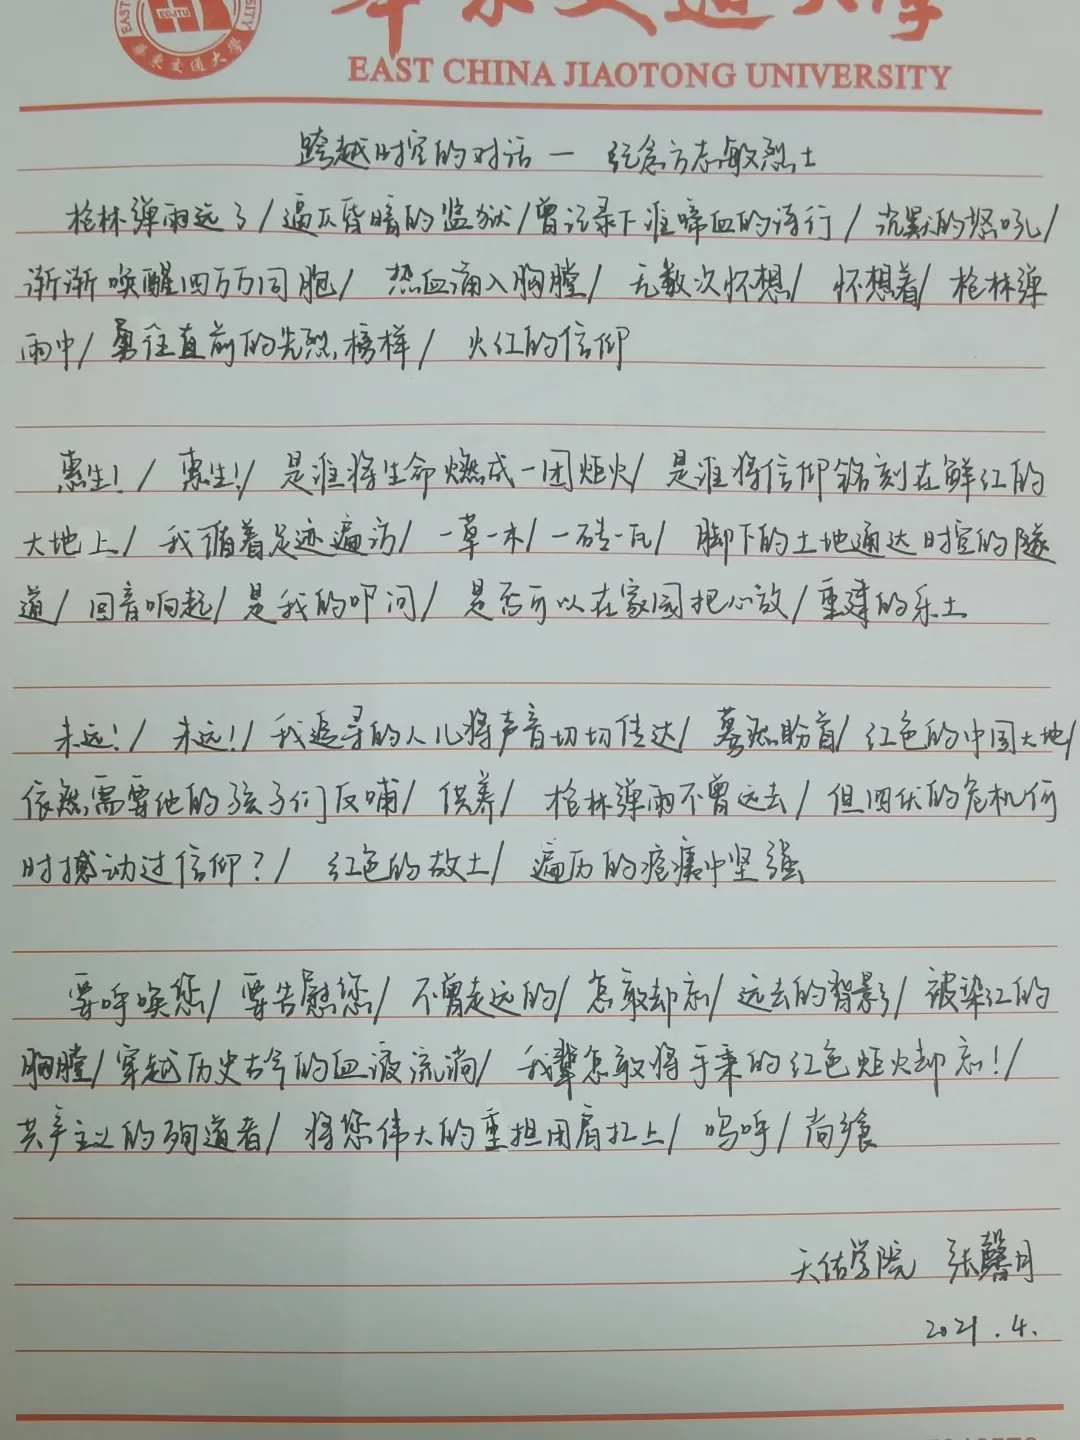 華東交通大學
EAST CHINA JIAOTONG UNIVERSITY
跨越时空的对话一 纪念方志敏烈士
枪林弹雨远了/逼仄昏暗的监狱/曾记录下谁啼血的诗行/沉默的怒吼/
渐渐唤醒四万万同胞/热血涌入胸膛/无数次怀想/怀想着/枪林弹
雨中/勇往直前的先烈,榜样/火红的信仰
惠生!/惠生!/是谁将生命燃成一团炬火/是谁将信仰铭刻在鲜红的
大地上/我循着足迹遍访/一草一木/一砖一瓦/脚下的土地通达时空的隧
道/回音响起/是我的叩问/是否可以在家园把心放/重建的乐土
未远!/未远!/我追寻的人儿将声音切切传达/蓦然盼首/红色的中国大地/
依然需要他的孩子们反哺/供养/枪林弹雨不曾远去/但四伏的危机何
时撼动过信仰?/红色的故土/遍历的疮痍中坚强
要呼唤您/要告慰您/不曾走远的/怎敢却忘/远去的背影/被染红的
胸膛/穿越历史古今的血液流淌/我辈怎敢将手秉的红色炬火却忘!/
共产主义的殉道者/将您伟大的重担用肩扛上/呜呼/尚飨
天佑学院 张馨月
2021.4.